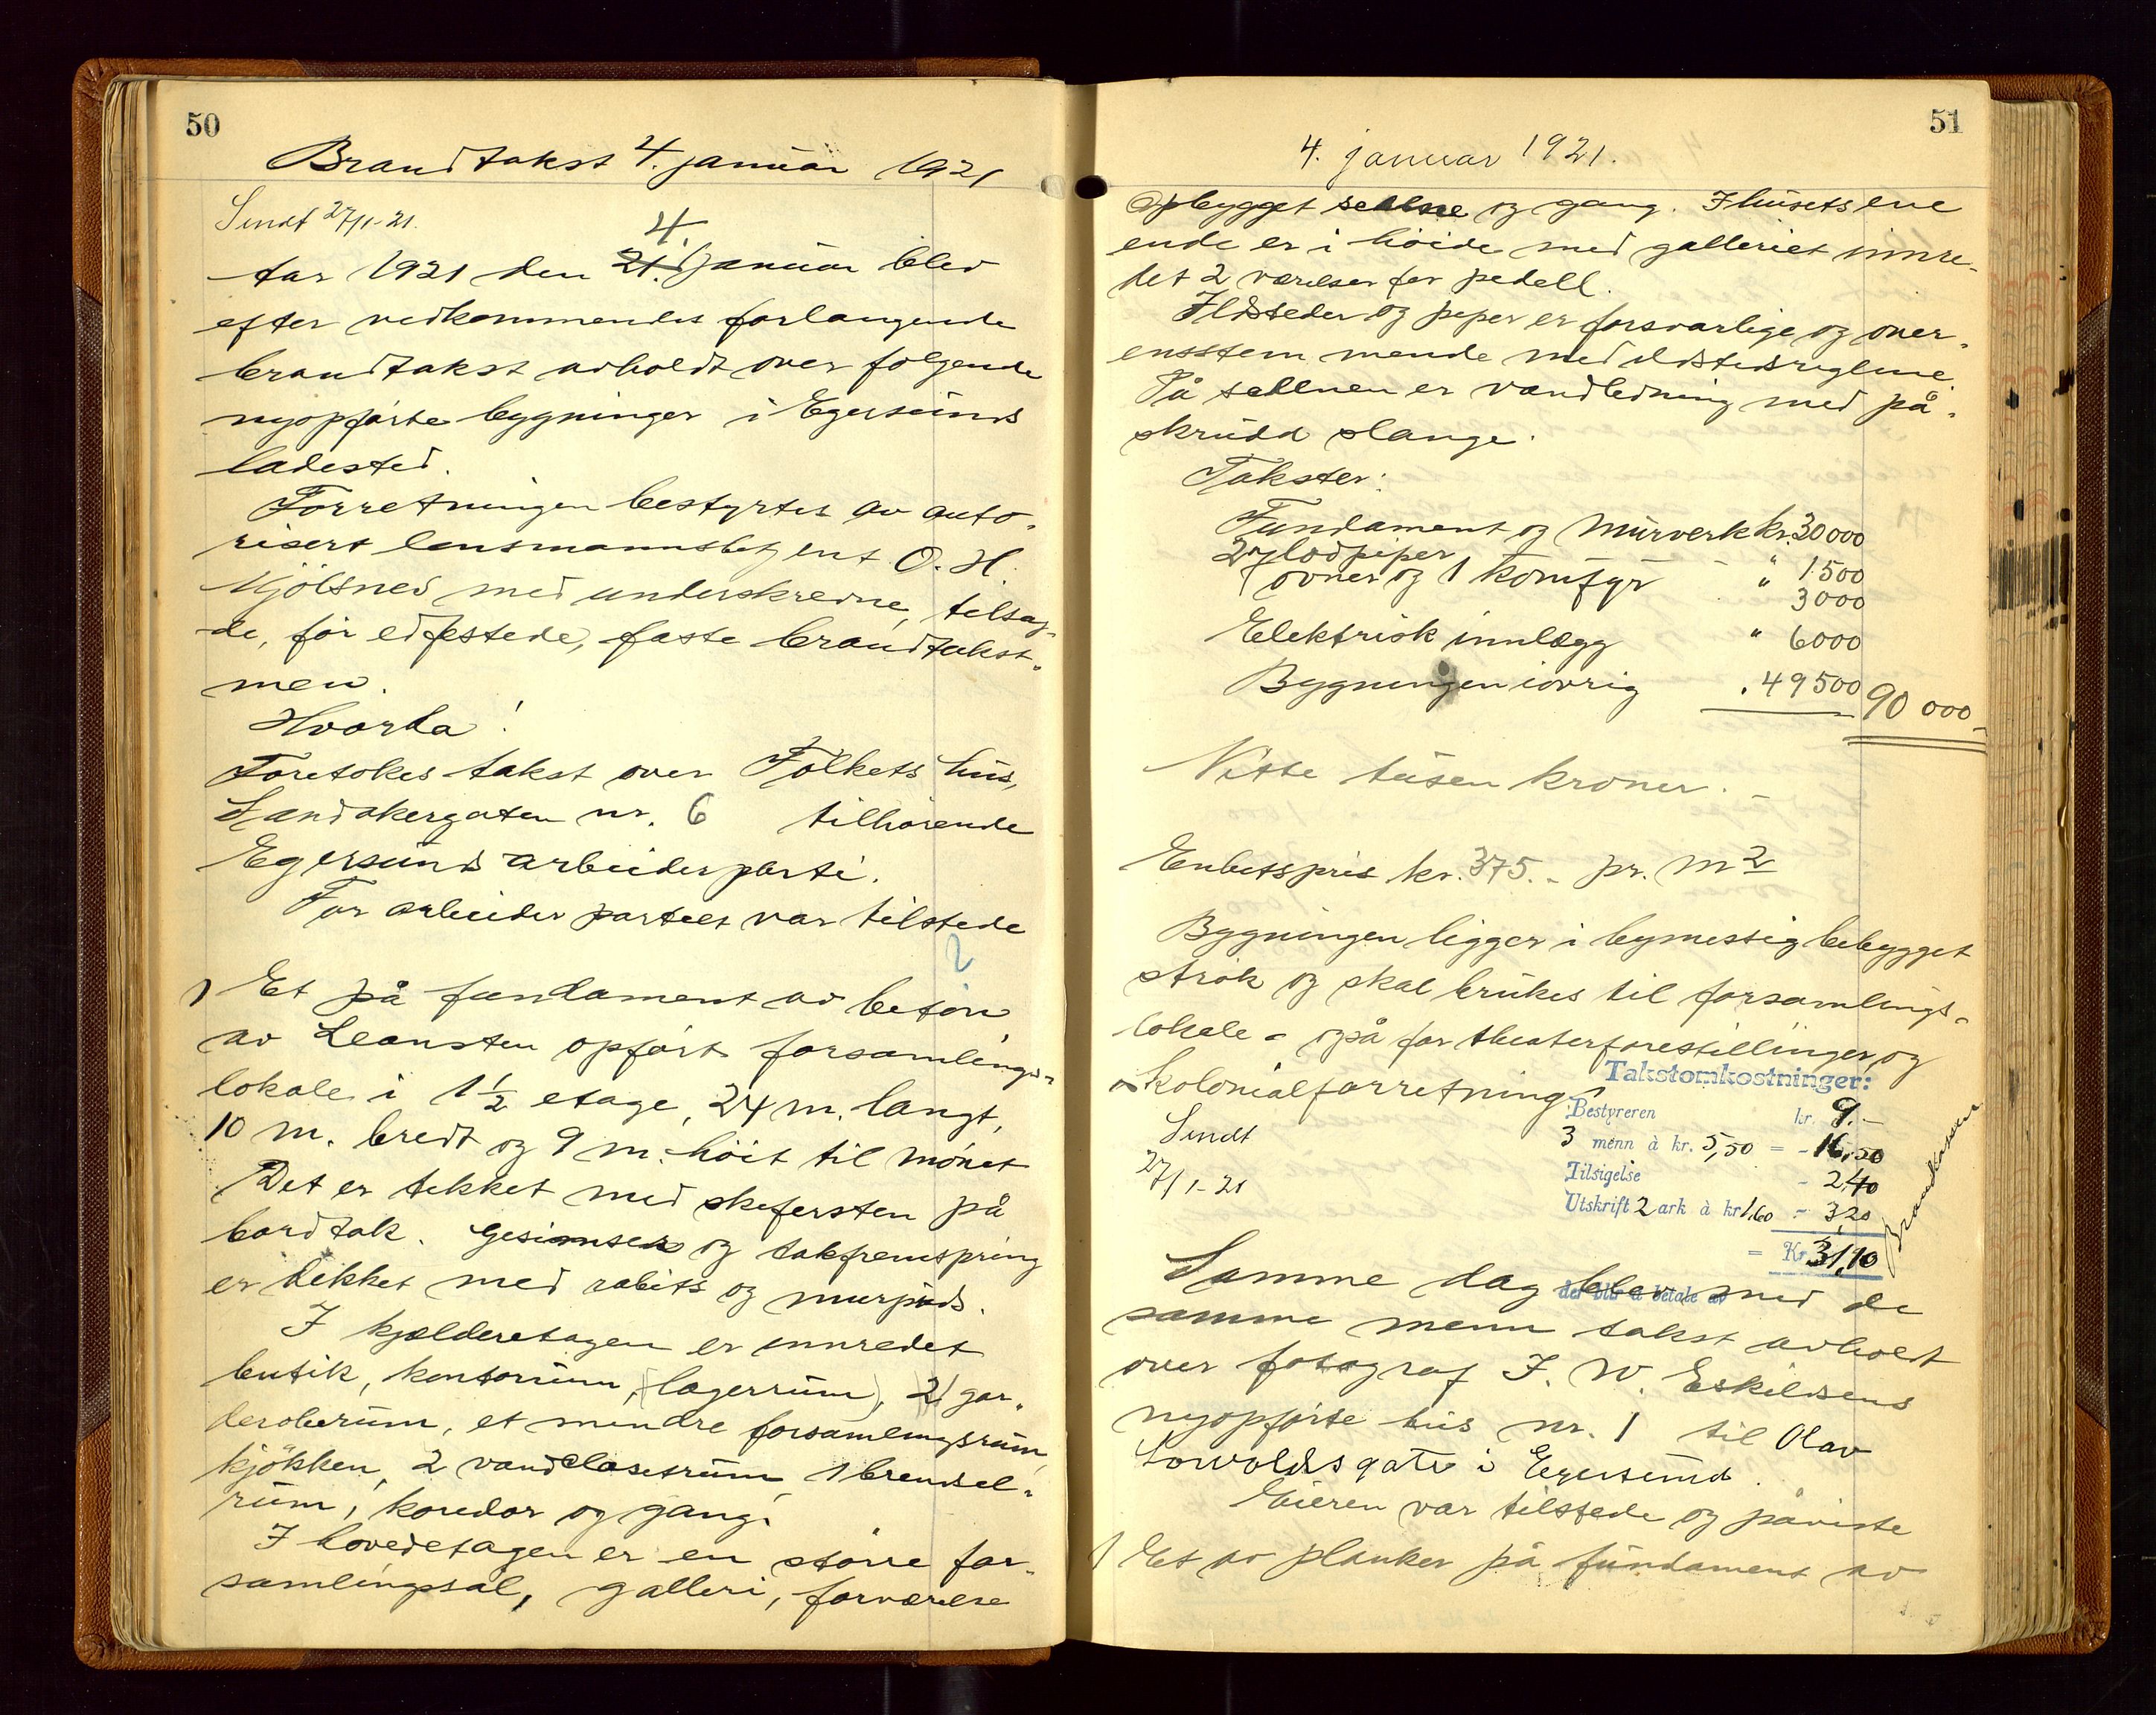 50
Brandtakst 4. januar 1921
Sendt 27/1-21.
4.
Aar 1921 den 21. januar blev
efter vedkommendes forlangende
brandtakst avholdt over følgende
nyopførte bygninger i Egersunds
ladested.
Forretningen bestyrtes av auto-
risert lensmannsbetjent O. H.
Mjølsnes med underskrevne, tilsag-
de, før edfestede, faste brandtakst-
menn.
Hvorda!
Foretokes takst over Folkets hus,
Landøkergaten nr. 6 tilhørende
Egersunds arbeiderparti.
For arbeiderpartiet var tilstede
2
1 Et på fundament av beton
av Leansten opført forsamlings-
lokale i 1½ etage, 24 m. langt,
10 m. bredt og 9 m. høit til mønet
Det er tekket med skifersten på
bordtak. Gesimser og takfremspring
er dekket med rabits og murpuds.
I kjelderetagen er innredet
butik, kontorrum, (lagerrum), 2 gar-
deroberum, et mindre forsamlingsrum,
kjøkken, 2 vandclosetrum, 1 brendsel-
rum, koredor og gang.
I hovedetagen er en større for-
samlingsal, galleri, forværelse
51
4. januar 1921.
opbygget scene og gang. I husets ene
ende er i høide med galleriet innre-
det 2 værelser for pedell.
Ildsteder og piper er forsvarlige og over-
ensstemmende med ildstedsreglene.
På scenen er vandledning med på-
skrudd slange.
Takster:
Fundament og murverk kr. 30000
2 lodpiper - " 1500
7 ovner og 1 komfyr " 3000
Elektrisk innlegg " 6000
Bygningen iøvrig " 49500 90 000
Nitti tusen kroner. -
Enhetspris kr. 375.- pr. m2
Bygningen ligger i bymessig bebygget
strøk og skal brukes til forsamlings-
lokale - også for theaterforestillinger og
kolonialforretning.
Takstomkostninger:
Bestyreren kr. 9.-
3 menn à kr. 5,50 = - 16,50
Tilsigelse - 2,40
Utskrift 2 ark à kr 1,60 - 3,20
= Kr. 31,10
det blir å betale av
Brandkassen
Sendt
27/1-21
Samme dag blev med de
samme menn takst avholdt
over fotograf J. W. Eskildsens
nyopførte hus nr. 1 til Olav
Lorvoldsgate i Egersund.
Eieren var tilstede og påviste
1 Et av planker på fundament av